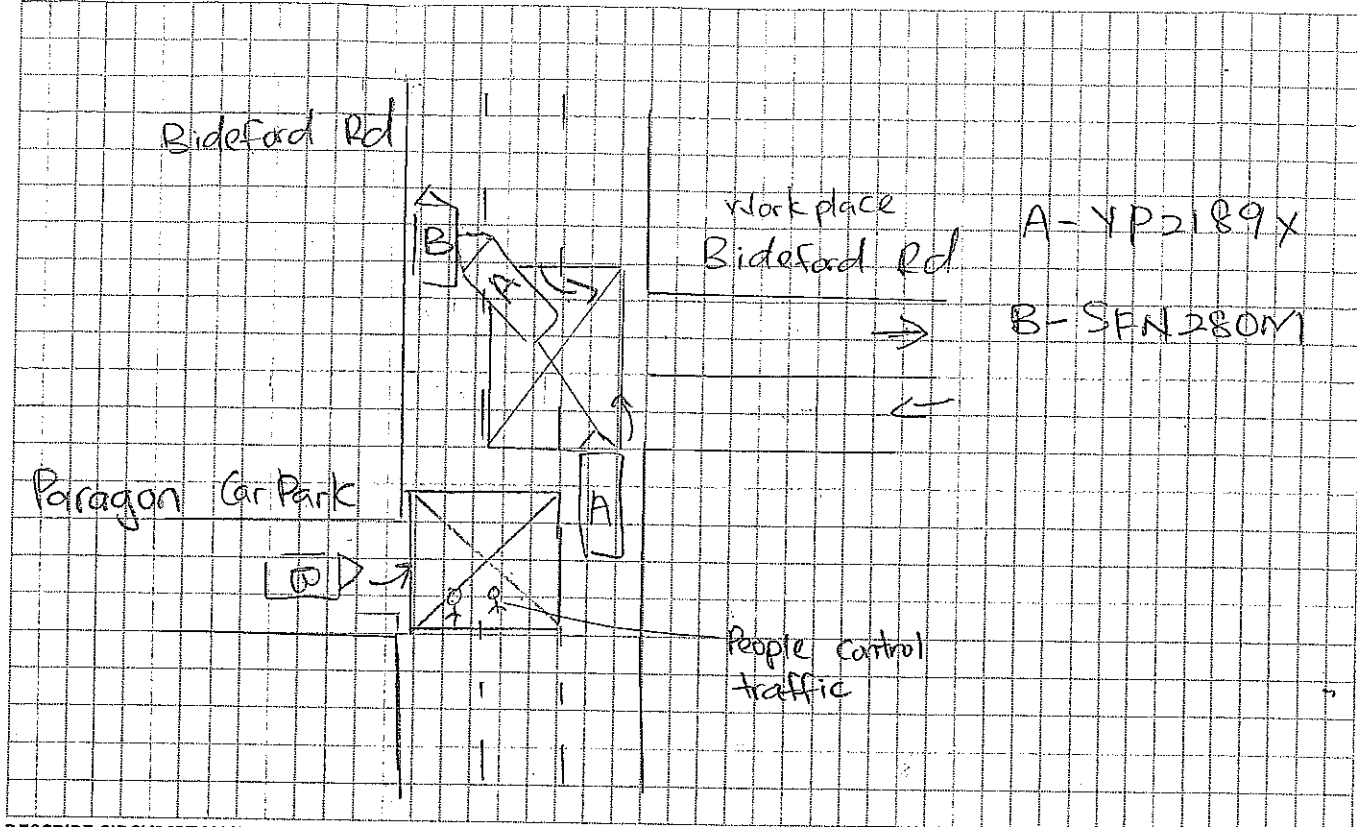 Bideford Rd
Workplace
Bideford Rd
A - YP2189X
B - SFN280M
B
A
A
Paragon Car Park
B
People control
traffic